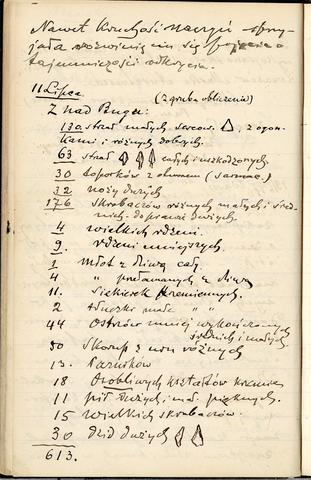 Nawet kruchość naczyń sprzy-
jała rozwinięciu się pojęcia o
tajemniczości odkrycia.
11 Lipca (z gruba obliczenia)
Z nad Bugu:
130 strzał małych sercow. , z ogon-
kami i różnych dobrych.
63 strzał całych i uszkodzonych
30 toporków z otworem (sarmac.)
32 noży dużych
176 skrobaczów różnych małych i śred-
nich do prawie dużych.
4 wielkich rdzeni.
9. rdzeni mniejszych.
1 młot z dziurą cały.
4 " przełamanych z dziurą
11. Siekierek krzemiennych.
2 tłuczki małe " "
44 Ostrzów mniej wykończonych
średnich i małych.
50 Skorup z urn różnych
13. Paciorków
18 Osobliwych kształtów krzemien
11 pił dużych i mał. pięknych.
15 wielkich skrobaczów.
30 dzid dużych
613.